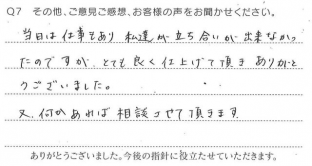 Q7 その他、ご意見ご感想、お客様の声をお聞かせください。
当日は仕事もあり 私達が立ち合いが出来なかっ
たのですが、とても良く仕上げて頂き ありがと
うございました。
又、何かあれば 相談させて頂きます
ありがとうございました。今後の指針に役立たせていただきます。